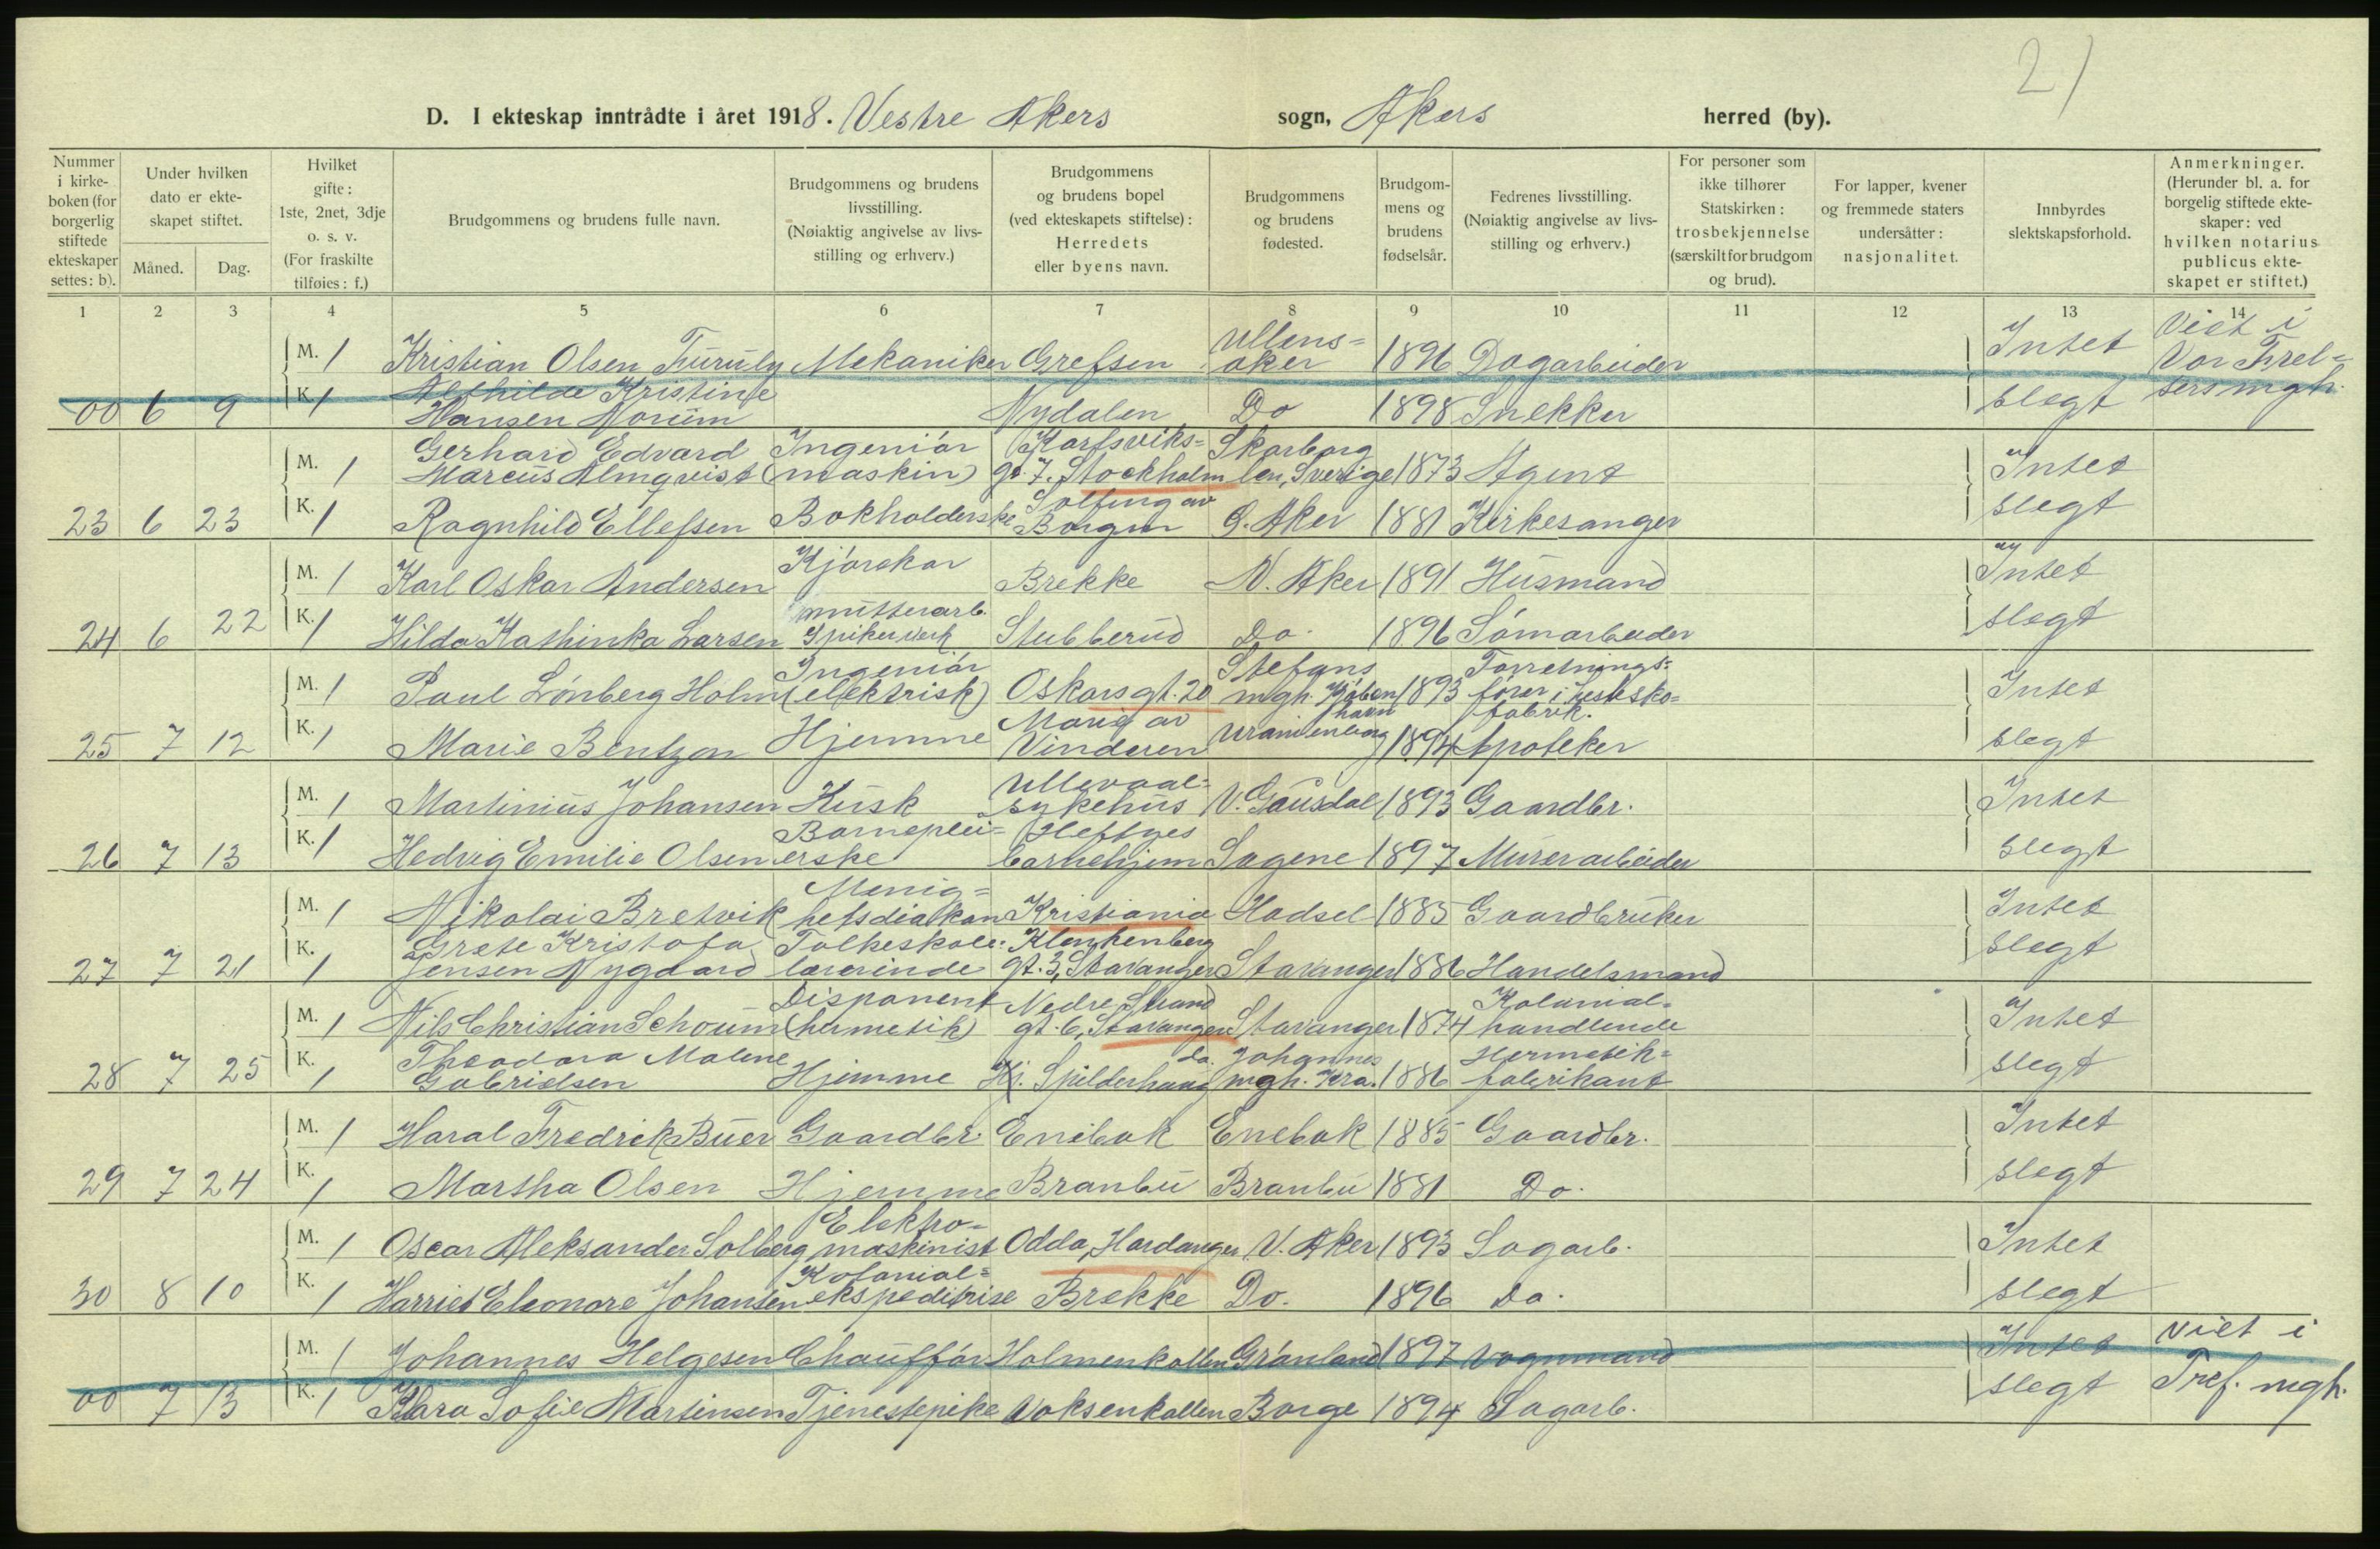 21
D. I ekteskap inntrådte i året 1918. Vestre Akers sogn, Akers herred (by).
Nummer i kirkeboken (for borgerlig stiftede ekteskaper settes: b).
Under hvilken dato er ekteskapet stiftet.
Måned. Dag.
Hvilket gifte: 1ste, 2net, 3dje o. s. v. (For fraskilte tilføies: f.)
Brudgommens og brudens fulle navn.
Brudgommens og brudens livsstilling. (Nøiaktig angivelse av livsstilling og erhverv.)
Brudgommens og brudens bopel (ved ekteskapets stiftelse): Herredets eller byens navn.
Brudgommens og brudens fødested.
Brudgommens og brudens fødselsår.
Fedrenes livsstilling. (Nøiaktig angivelse av livsstilling og erhverv.)
For personer som ikke tilhører Statskirken: trosbekjennelse (særskilt for brudgom og brud).
For lapper, kvener og fremmede staters undersåtter: nasjonalitet.
Innbyrdes slektskapsforhold.
Anmerkninger. (Herunder bl. a. for borgelig stiftede ekteskaper: ved hvilken notarius publicus ekteskapet er stiftet.)
1 2 3 4 5 6 7 8 9 10 11 12 13 14
M. 1 Kristian Olsen Furuly Mekaniker Grefsen Ullensaker 1896 Dagarbeider Intet Viet i Vor Frelsers mgh.
00 6 9 K. 1 Alfhilde Kristine Hansen Norum Nydalen Do 1898 Snekker slegt
M. 1 Gerhard Edvard Marcus Almqvist Ingeniør (maskin) Karfsviksgt. 7. Stockholm Skarborg len, Sverige 1873 Agent Intet
23 6 23 K. 1 Ragnhild Ellefsen Bokholderske Solfeng av Borgen G. Aker 1881 Kirkesanger slegt
M. 1 Karl Oskar Andersen Kjørekar Brekke N. Aker 1891 Husmand Intet
24 6 22 K. 1 Hilda Kathinka Larsen mutterarb. Spikerverk Stubberud Do. 1896 Sømarbeider slegt
M. 1 Paul Lønberg Holm Ingeniør (elektrisk) Oskarsgt. 20 Stefans mgh. Køben havn 1893 Forretningsfører i hestesko=fabrik. Intet
25 7 12 K. 1 Marie Bentzon Hjemme Marig av Vinderen Uranienborg 1894 Apoteker slegt
M. 1 Martinius Johansen Kusk Ullevaalsykehus V. Gausdal 1893 Gaardbr. Intet
26 7 13 K. 1 Hedvig Emilie Olsen Barnepleierske Heftyes barnehjem Sagene 1897 Murerarbeider slegt
M. 1 Nikolai Bretvik Menighetsdiakon Kristiania Hadsel 1885 Gaardbruker Intet
27 7 21 K. 1 Grete Kristofa Jensen Nygaard Folkeskolelærerinde Klenkenberg gt. 3, Stavanger Stavanger 1886 Handelsmand slegt
M. 1 Nils Christian Schoum Disponent (hermetik) Nedre Strand gt. 6, Stavanger Stavanger 1874 Kolonialhandlende Intet
28 7 25 K. 1 Theodora Malene Gabrielsen Hjemme Kj. Spilderhaug do. Johannes mgh. Kra. 1886 Hermetikfabrikant slegt
M. 1 Haral Fredrik Buer Gaardbr. Enebak Enebak 1885 Gaardbr. Intet
29 7 24 K. 1 Martha Olsen Hjemme Branbu Branbu 1881 Do. slegt
M. 1 Oscar Aleksander Solberg Elektromaskinist Odda, Hardanger V. Aker 1893 Sagarb. Intet
30 8 10 K. 1 Harriet Eleonore Johansen Kolonialekspeditrise Brekke Do. 1896 Do. slegt
M. 1 Johannes Helgesen Chauffør Holmenkollen Grønland 1897 Vognmand Intet Viet i Tref. mgh.
00 7 13 K. 1 Klara Sofie Martinsen Tjenestepike Voksenkollen Borge 1894 Sagarb. slegt